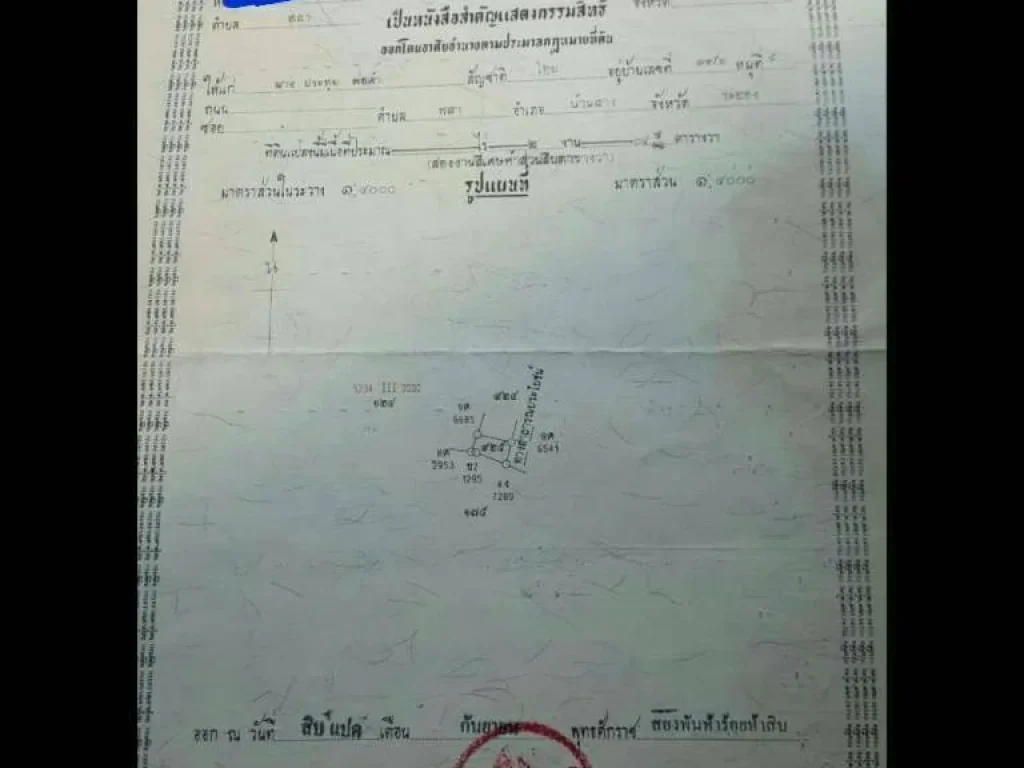 ตำบล พลา
เป็นหนังสือสำคัญแสดงกรรมสิทธิ์ จังหวัด
ออกโดยอาศัยอำนาจตามประมวลกฎหมายที่ดิน
ให้แก่ นาง สัญชาติ ไทย อยู่บ้านเลขที่ หมู่ที่ ๕
ถนน
ซอย ตำบล พลา อำเภอ บ้านฉาง จังหวัด ระยอง
ที่ดินแปลงนี้มีเนื้อที่ประมาณ ไร่ ๒ งาน ตารางวา
(สองงานสี่เศษห้าส่วนสิบตารางวา)
มาตราส่วนในระวาง ๑:๔๐๐๐ รูปแผนที่ มาตราส่วน ๑:๔๐๐๐
น
III
๑๒๔
๔๒๔
ทางสาธารณประโยชน์
6685
๔๒๕
6541
2953
1295
7289
๑๗๕
ออก ณ วันที่ สิบแปด เดือน กันยายน พุทธศักราช สองพันห้าร้อยห้าสิบ